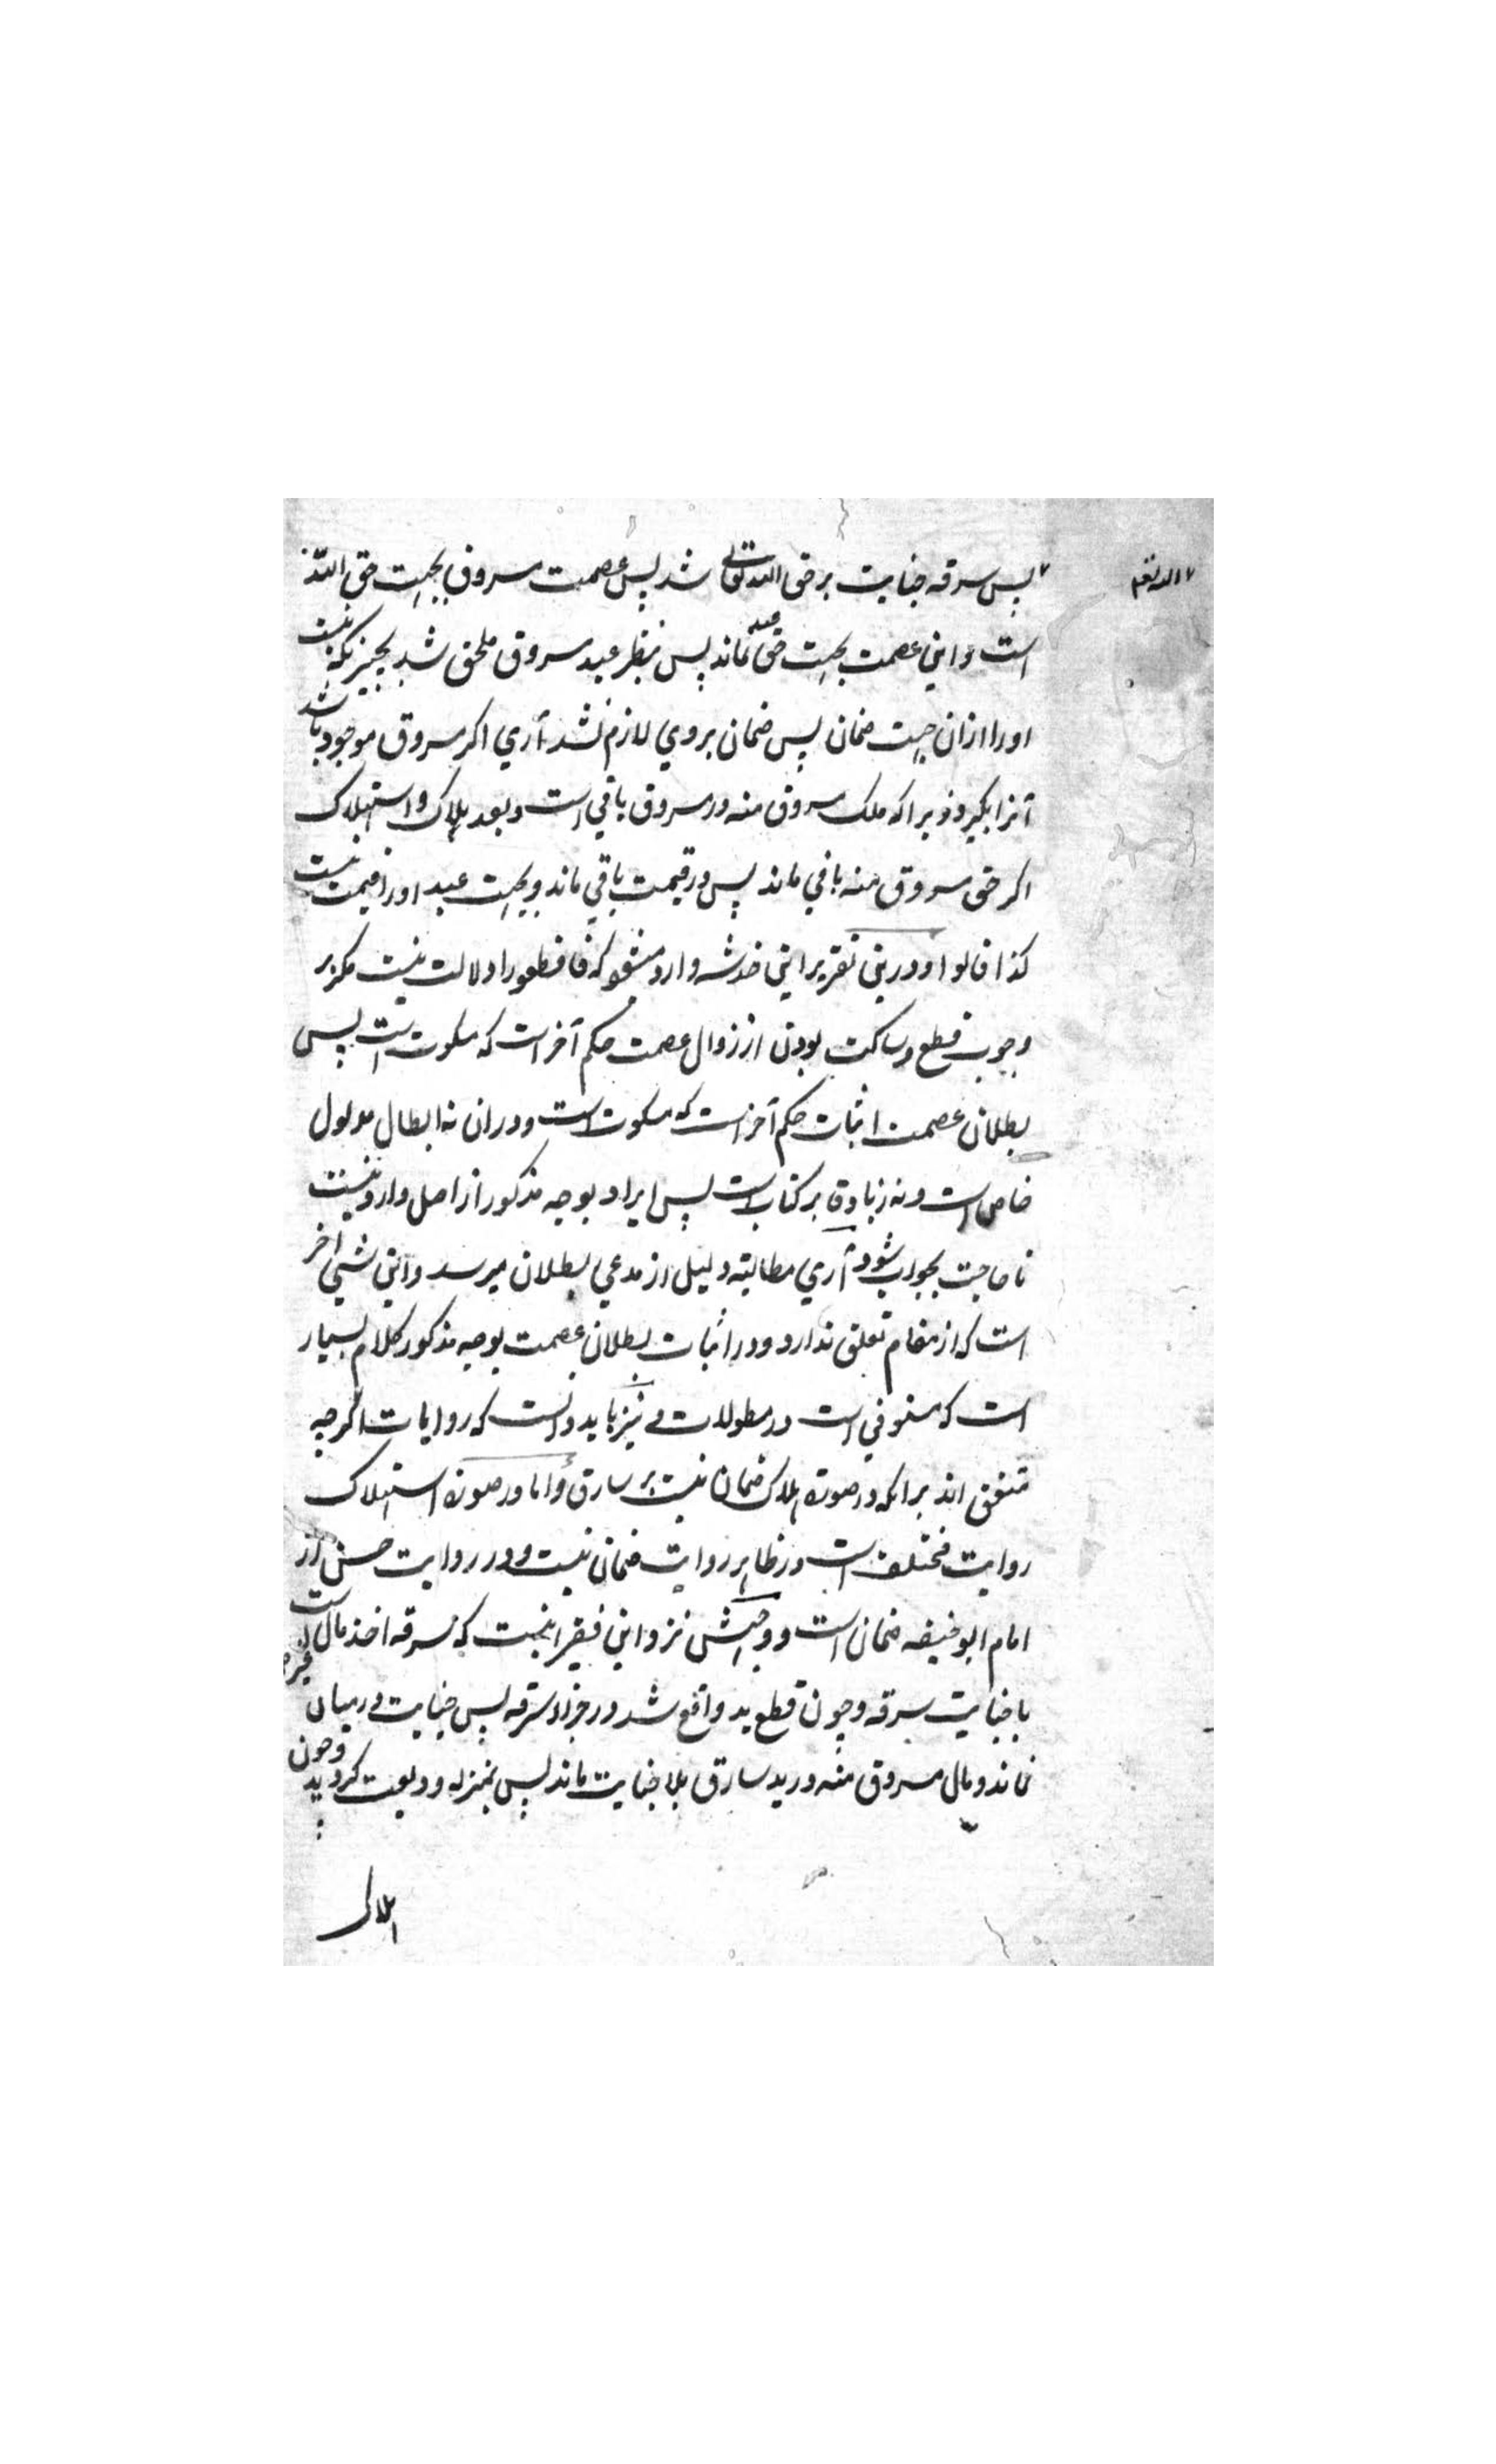 پس سرقه جنایت بر حق الله تعالی شد پس عصمت مسروق بجهت حق الله
است و این عصمت بجهت حق عبد نماند پس بنظر عبد مسروق ملحق شد بچیزیکه نیست
او را ازان جهت ضمان پس ضمان بروی لازم نشد آری اکر مسروق موجود باشد
آنرا بکیرد زیراکه ملک مسروق منه در مسروق باقی است و بعد هلاک و استهلاک
اکر حق مسروق منه باقی ماند پس در قیمت باقی ماند و بجهت عبد او را قیمت نیست
کذا قالوا و درین تقریر این خدشه وارد میشود که فاقطعوا را دلالت نیست مکر بر
وجوب قطع و ساکت بودن از زوال عصمت حکم آخر است که سکوت است پس
بطلان عصمت اثبات حکم آخر است که مسکوت است و دران نه ابطال مدلول
خاص است و نه زیادة بر کتاب است پس ایراد بوجه مذکور از اصل وارد نیست
تا حاجت بجواب شود آری مطالبه دلیل از مدعی بطلان میرسد و این شیی آخر
است که از مقام تعلق ندارد و در اثبات بطلان عصمت بوجه مذکور کلام بسیار
است که مستوفی است در مطولات و نیز باید دانست که روایات اکرچه
متفق اند برانکه در صورة هلاک ضمان نیست بر سارق و اما در صورة استهلاک
روایت مختلف است در ظاهر روایت ضمان نیست و در روایت حسن از
امام ابو حنیفه ضمان است و وجهش نزد این فقیر اینست که سرقه اخذ مال غیر است
با جنایت سرقه و چون قطع ید واقع شد در جزاء سرقه پس جنایت درمیان
نماند و مال مسروق منه در ید سارق بلا جنایت ماند پس بمنزله ودیعت کردید و چون